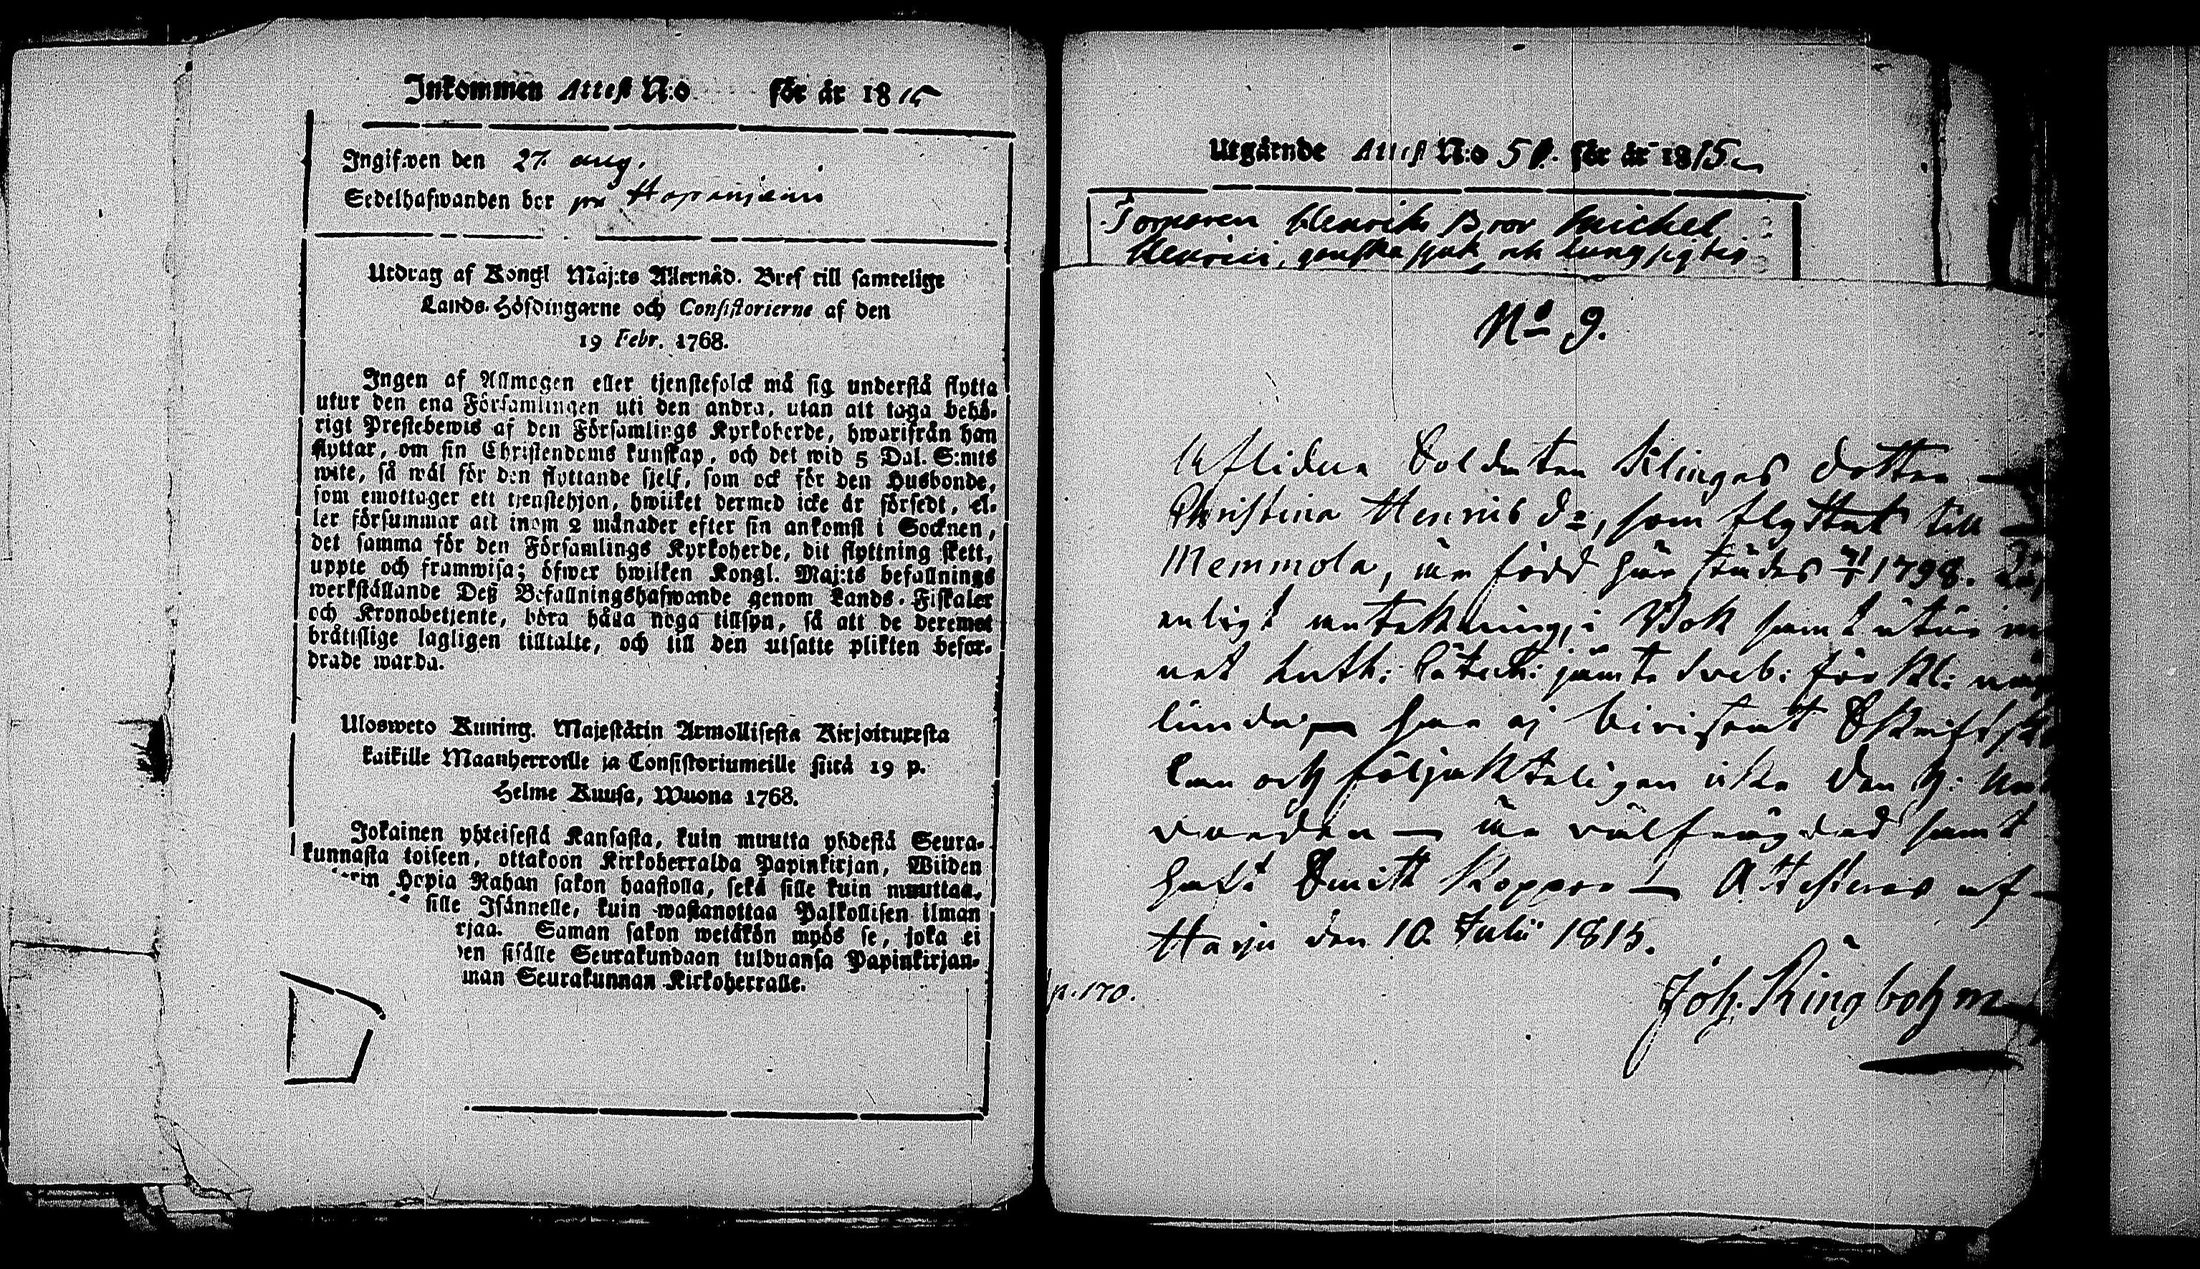 Inkommen Attest N:o för år 1815
Ingifwen den 27. aug.
Sedelhafwanden bor på Hapaniemi
Utdrag af Kongl Maj:ts Allernåd. Bref till samtelige
Lands-Höfdingarne och Consistorierne af den
19 Febr. 1768.
Ingen af Allmogen eller tjenstefolck må sig understå flytta
utur den ena Församlingen uti den andra, utan att taga behö-
rigt Prestebewis af den Församlings Kyrkoherde, hwarifrån han
flyttar, om sin Christendoms kunskap, och det wid 5 Dal. S:mts
wite, så wäl för den flyttande sjelf, som ock för den Husbonde,
som emottager ett tjenstehjon, hwilket dermed icke är försedt, el-
ler försummar att inom 2 månader efter sin ankomst i Socknen,
det samma för den Församlings Kyrkoherde, dit flyttning skett,
uppte och framwisa; öfwer hwilken Kongl. Maj:ts befallnings
werkställande Deß Befallningshafwande genom Lands-Fiskaler
och Kronobetjente, böra hålla noga tillsyn, så att de deremot
bråttslige lagligen tilltalte, och till den utsatte plikten befor-
drade warda.
Ulosweto Kuning. Majestätin Armollisesta Kirjoituxesta
kaikille Maanherroille ja Consistoriumeille siitä 19 p.
Helme Kuusa, Wuona 1768.
Jokainen yhteisestä Kansasta, kuin muutta yhdestä Seura-
kunnasta toiseen, ottakoon Kirkoherralda Papinkirjan, Wiiden
Hopia Rahan sakon haastolla, sekä sille kuin muuttaa,
sille Isännelle, kuin wastanottaa Palkollisen ilman
rjaa. Saman sakon wetäkön myös se, joka ei
en sisälle Seurakundaan tulduansa Papinkirjan-
man Seurakunnan Kirkoherralle.
Utgårnde Attest N:o 50. för år 1815
Torparen Henrichs Bror Michel
Henrici, ganska sjuk och Lungsigtig
No 9.
Aflidne Soldaten Klingas dotter
Christina Henricsdr, som flyttat till
Memmola, är född här städes 1798.
enligt antekning, i Bok samt utan
nat Luth: Catech: jämte Sveb: förkl:
lunda har ej bivistat Skrift
lan och följakteligen icke den H:
varden är välfrägdad samt
haft Smitt Koppor Attesteras af
Harju den 10 Julii 1815.
Joh. Ringbohm
p. 170.